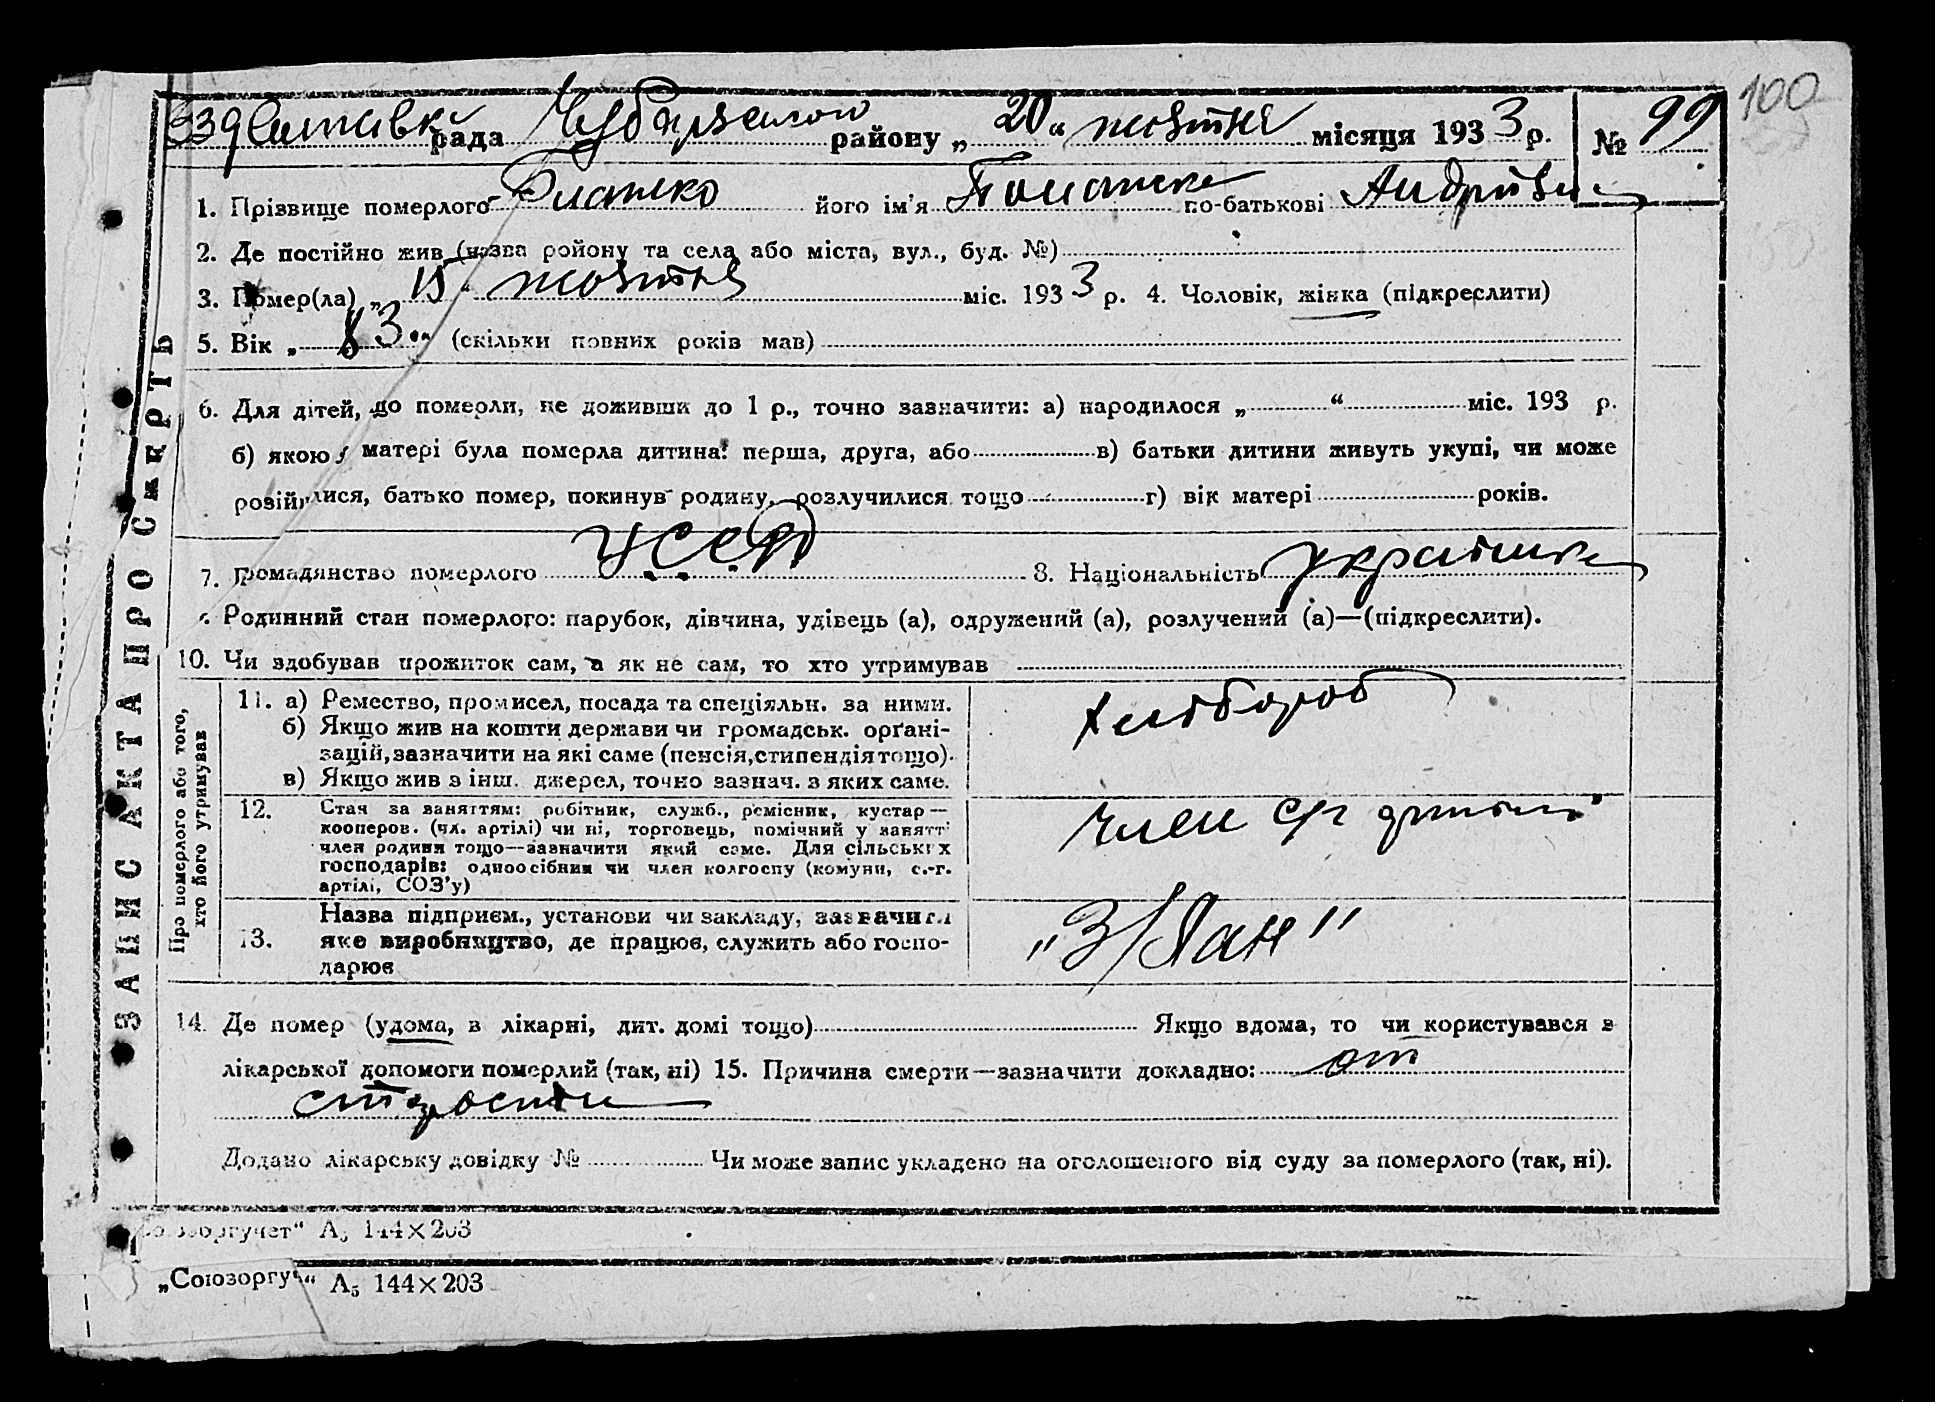 рада Чубарвеського району „ 20 “ жовтня місяця 193 3 р. № 99
100
1. Прізвище померлого Блашко його ім'я по-батькові Андріївн
2. Де постійно жив (назва ройону та села або міста, вул., буд. №)
3. Помер(ла) „ 15 “ жовтня міс. 193 3 р. 4. Чоловік, жінка (підкреслити)
5. Вік „ 83 “ (скільки повних років мав)
6. Для дітей, що померли, не доживши до 1 р., точно зазначити: а) народилося „ “ міс. 193 р.
б) якою у матері була померла дитина: перша, друга, або в) батьки дитини живуть укупі, чи може
розійшлися, батько помер, покинув родину, розлучилися тощо г) вік матері років.
7. Громадянство померлого УССР 8. Національність українка
Родинний стан померлого: парубок, дівчина, удівець (а), одружений (а), розлучений (а)—(підкреслити).
10. Чи здобував прожиток сам, а як не сам, то хто утримував
ЗАПИС АКТА ПРО СМЕРТЬ
Про померлого або того, хто його утримував
11. а) Ремество, промисел, посада та спеціяльн. за ними. хлібороб
б) Якщо жив на кошти держави чи громадськ. орґані-
зацій, зазначити на які саме (пенсія, стипендія тощо).
в) Якщо жив з інш. джерел, точно зазнач. з яких саме.
12. Стан за заняттям: робітник, служб., ремісник, кустар — член с/г артілі
кооперов. (чл. артілі) чи ні, торговець, помічний у занятті
член родини тощо—зазначити який саме. Для сільських
господарів: одноосібник чи член колгоспу (комуни, с.-г.
артілі, СОЗ'у)
Назва підприєм., установи чи закладу, зазначити
13. яке виробництво, де працює, служить або госпо- „З/Лан"
дарює
14. Де помер (удома, в лікарні, дит. домі тощо) Якщо вдома, то чи користувався з
лікарської допомоги померлий (так, ні) 15. Причина смерти—зазначити докладно: от
старости
Додано лікарську довідку № Чи може запис укладено на оголошеного від суду за померлого (так, ні).
А5 144×203
„Союзоргуч“ А5 144×203